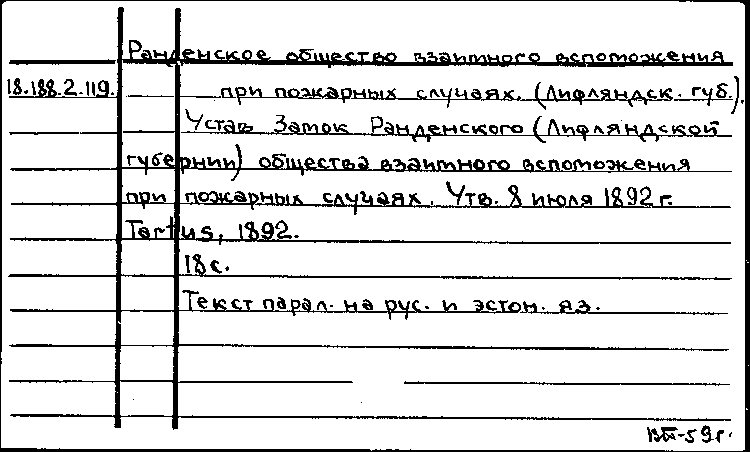 Ранденское общество взаимного вспоможения
18.188.2.119.
при пожарных случаях. (Лифляндск. губ.).
Устав Замок Ранденского (Лифляндской
губернии) общества взаимного вспоможения
при пожарных случаях. Утв. 8 июля 1892 г.
Tartus, 1892.
18 с.
Текст парал. на рус. и эстон. яз.
59 г.